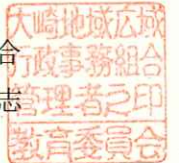 大崎地域広域
行政事務組合
管理者之印
教育委員会
合
志